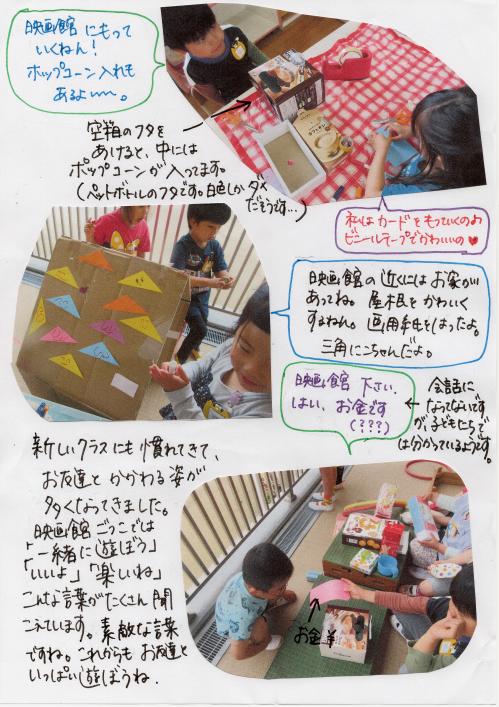 映画館にもって
いくねん！
ポップコーン入れも
あるよ〜〜。
空箱のフタを
あけると、中には
ポップコーンが入ってます。
(ペットボトルのフタです。白色しかダメ
だそうです…)
私はカードをもっていくの♪
ビニールテープでかわいいの♥
映画館の近くにはお家が
あってね。屋根をかわいく
するねん。画用紙をはったよ。
三角にこちゃんだよ。
映画館下さい。
はい、お金です
(???)
← 会話に
なってないです
が、子どもたちで
は分かっているようです。
新しいクラスにも慣れてきて、
お友達とかかわる姿が
多くなってきました。
映画館ごっこでは
「一緒に遊ぼう」
「いいよ」「楽しいね」
こんな言葉がたくさん聞
こえています。素敵な言葉
ですね。これからもお友達と
いっぱい遊ぼうね.
お金